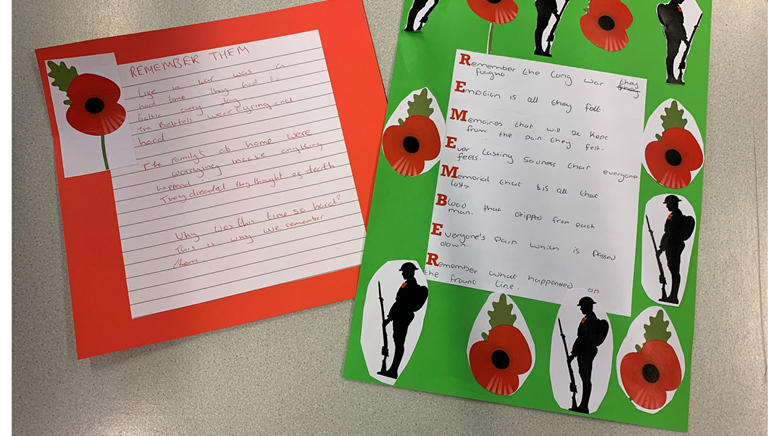 REMEMBER THEM
Life in war was a
hard time they had to
battle every day
The Battels were tyring and
hard
The familys at home were
worrying incase anything
happend
They dreaded they thought of death
Why was this time so hard?
This is why we remember
them
Remember the long war they
fought
Emotion is all they felt.
Memories that will be kept
from the pain they felt.
Ever lasting sadness that everyone
feels.
Memorial that is all that
lasts
Blood that dripped from each
man.
Everyone's pain which is passed
down
Remember what happened on
the frount line.